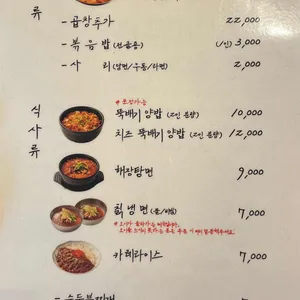 류
- 곱창추가 22,000
- 볶음밥 (1인) 3,000
- 사 리 (당면/우동/라면) 2,000
식사류
뚝배기 양밥 (2인 분량) 10,000
치즈 뚝배기 양밥 (2인 분량) 12,000
해장탕면 9,000
칡냉면 (물/비빔) 7,000
카레라이스 7,000
- 순두부찌개